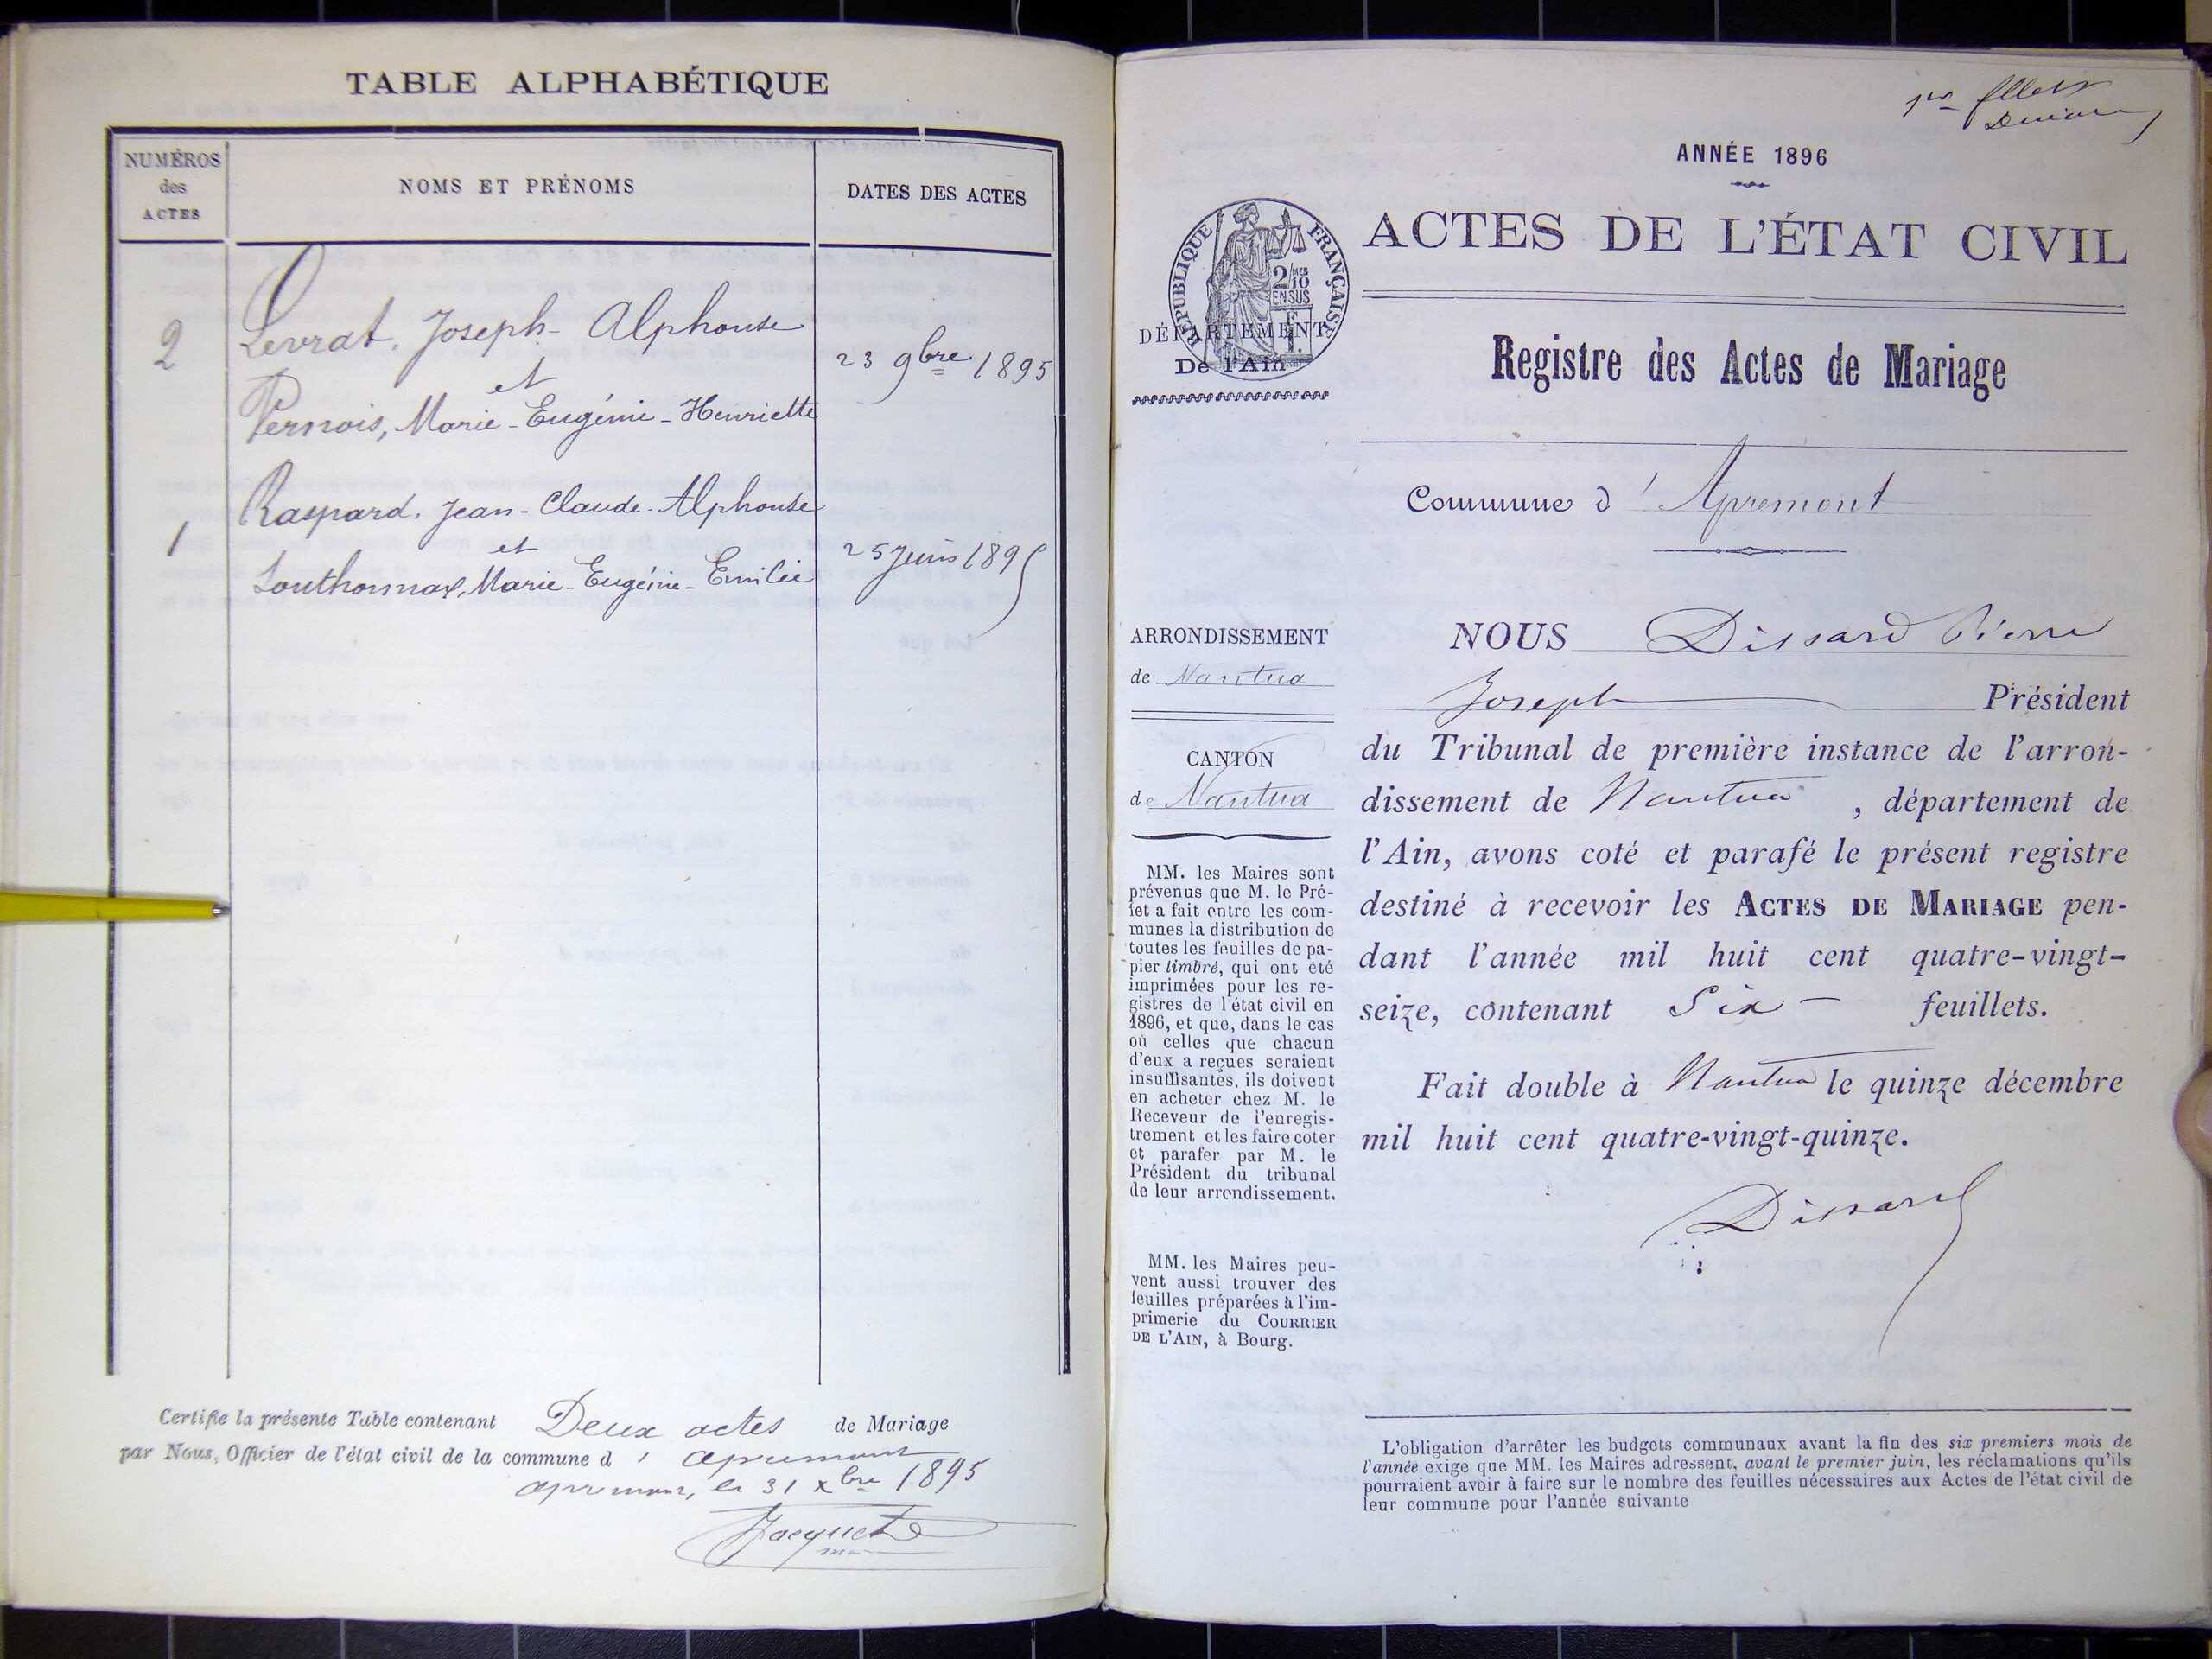 TABLE ALPHABÉTIQUE
NUMÉROS
des
ACTES
NOMS ET PRÉNOMS
DATES DES ACTES
2
Levrat, Joseph-Alphonse
et
23 9bre 1895
Pernois, Marie-Eugénie-Henriette
Raspard, Jean-Claude-Alphonse
1
et
25 Juin 1895
Louthonnax, Marie-Eugénie-Emilie
Certifie la présente Table contenant Deux actes de Mariage
par Nous, Officier de l'état civil de la commune d' apremont
apremont, le 31 xbre 1895
Jacquet
1er feuillet
Dissard
ANNÉE 1896
ACTES DE L'ÉTAT CIVIL
RÉPUBLIQUE FRANÇAISE
2/10
MES
EN SUS
DÉPARTEMENT
De l'Ain
Registre des Actes de Mariage
Commune d' Apremont
ARRONDISSEMENT
de Nantua
CANTON
de Nantua
MM. les Maires sont
prévenus que M. le Pré-
fet a fait entre les com-
munes la distribution de
toutes les feuilles de pa-
pier timbré, qui ont été
imprimées pour les re-
gistres de l'état civil en
1896, et que, dans le cas
où celles que chacun
d'eux a reçues seraient
insuffisantes, ils doivent
en acheter chez M. le
Receveur de l'enregis-
trement et les faire coter
et parafer par M. le
Président du tribunal
de leur arrondissement.
MM. les Maires peu-
vent aussi trouver des
feuilles préparées à l'im-
primerie du COURRIER
DE L'AIN, à Bourg.
NOUS Dissard Pierre
Joseph Président
du Tribunal de première instance de l'arron-
dissement de Nantua, département de
l'Ain, avons coté et parafé le présent registre
destiné à recevoir les ACTES DE MARIAGE pen-
dant l'année mil huit cent quatre-vingt-
seize, contenant Six feuillets.
Fait double à Nantua le quinze décembre
mil huit cent quatre-vingt-quinze.
Dissard
L'obligation d'arrêter les budgets communaux avant la fin des six premiers mois de
l'année exige que MM. les Maires adressent, avant le premier juin, les réclamations qu'ils
pourraient avoir à faire sur le nombre des feuilles nécessaires aux Actes de l'état civil de
leur commune pour l'année suivante